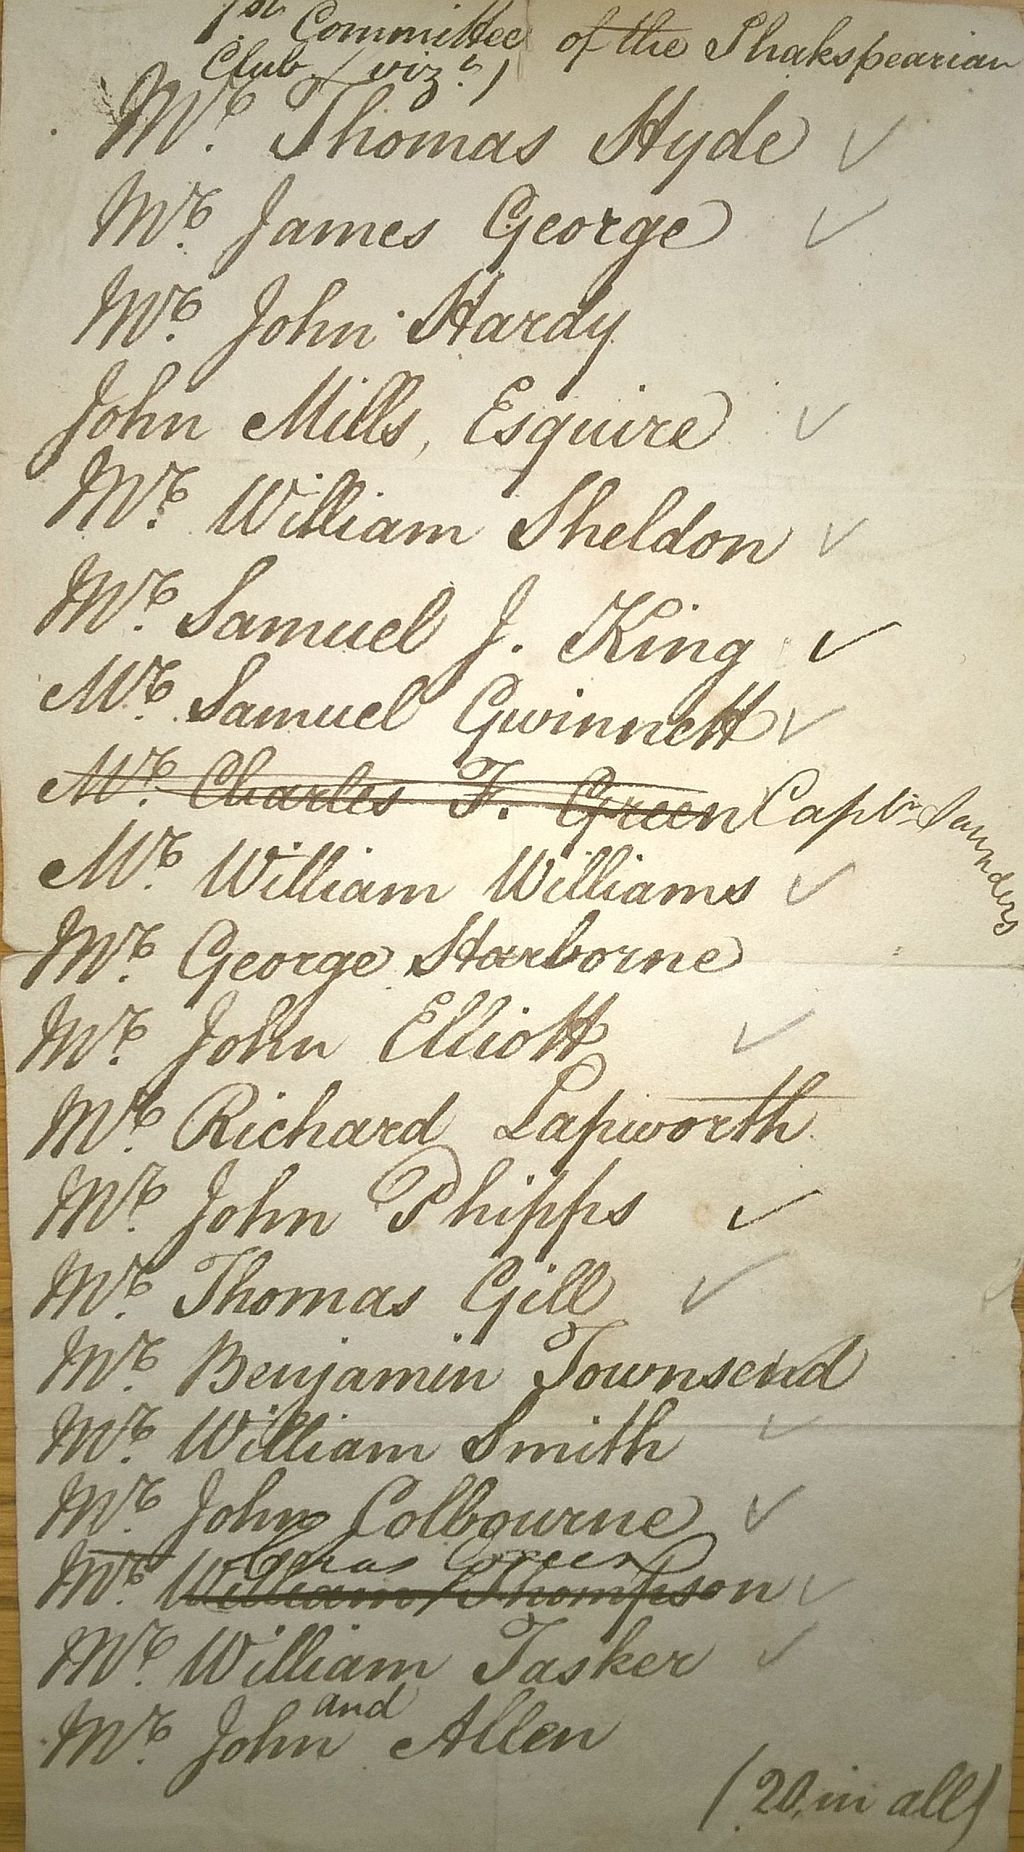 1st Committee of the Shakspearian
Club (vizt,)
Mr. Thomas Hyde ✓
Mr. James George ✓
Mr. John Hardy
John Mills, Esquire ✓
Mr. William Sheldon ✓
Mr. Samuel J. King ✓
Mr. Samuel Gwinnett ✓
Mr. Charles F. Green Captn Saunders
Mr. William Williams ✓
Mr. George Harborne
Mr. John Elliott ✓
Mr. Richard Lapworth
Mr. John Phipps ✓
Mr. Thomas Gill ✓
Mr. Benjamin Townsend ✓
Mr. William Smith ✓
Mr. John Colbourne ✓
Green
Mr. William Thompson ✓
Mr. William Tasker ✓
and
Mr. John Allen
(20, in all)